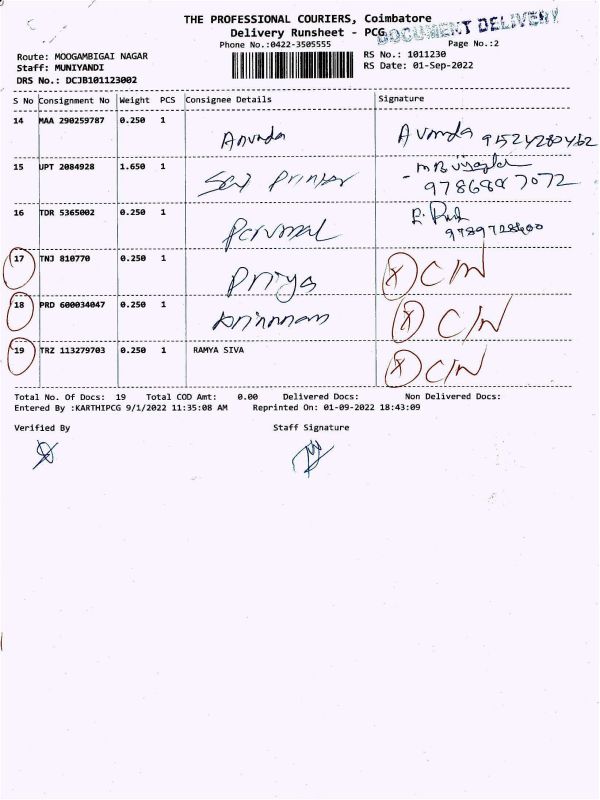 THE PROFESSIONAL COURIERS, Coimbatore
Delivery Runsheet - PCG
DOCUMENT DELIVERY
Phone No.:0422-3505555
Page No.:2
Route: MOOGAMBIGAI NAGAR
RS No.: 1011230
Staff: MUNIYANDI
RS Date: 01-Sep-2022
DRS No.: DCJB101123002
S No Consignment No Weight PCS Consignee Details Signature
14 MAA 290259787 0.250 1
15 UPT 2084928 1.650 1 Printer
16 TDR 5365002 0.250 1 Perumal
17 TNJ 810770 0.250 1 Priya X C/N
18 PRD 600034047 0.250 1 X C/N
19 TRZ 113279703 0.250 1 RAMYA SIVA X C/N
Total No. Of Docs: 19 Total COD Amt: 0.00 Delivered Docs: Non Delivered Docs:
Entered By :KARTHIPCG 9/1/2022 11:35:08 AM Reprinted On: 01-09-2022 18:43:09
Verified By Staff Signature